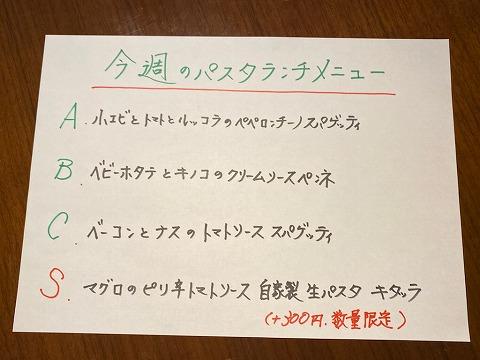 今週のパスタランチメニュー
A. 小エビとトマトとルッコラのペペロンチーノスパゲッティ
B. ベビーホタテとキノコのクリームソースペンネ
C. ベーコンとナスのトマトソース スパゲッティ
S. マグロのピリ辛トマトソース 自家製 生パスタ キタッラ
(+300円.数量限定)